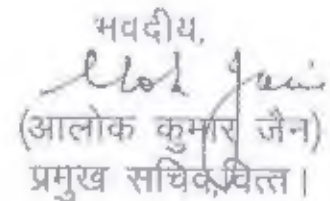 भवदीय,
(आलोक कुमार जैन)
प्रमुख सचिव,वित्त।